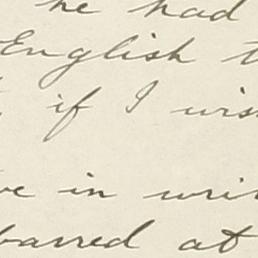 he had
English t
if I wis
ve in writ
barred at